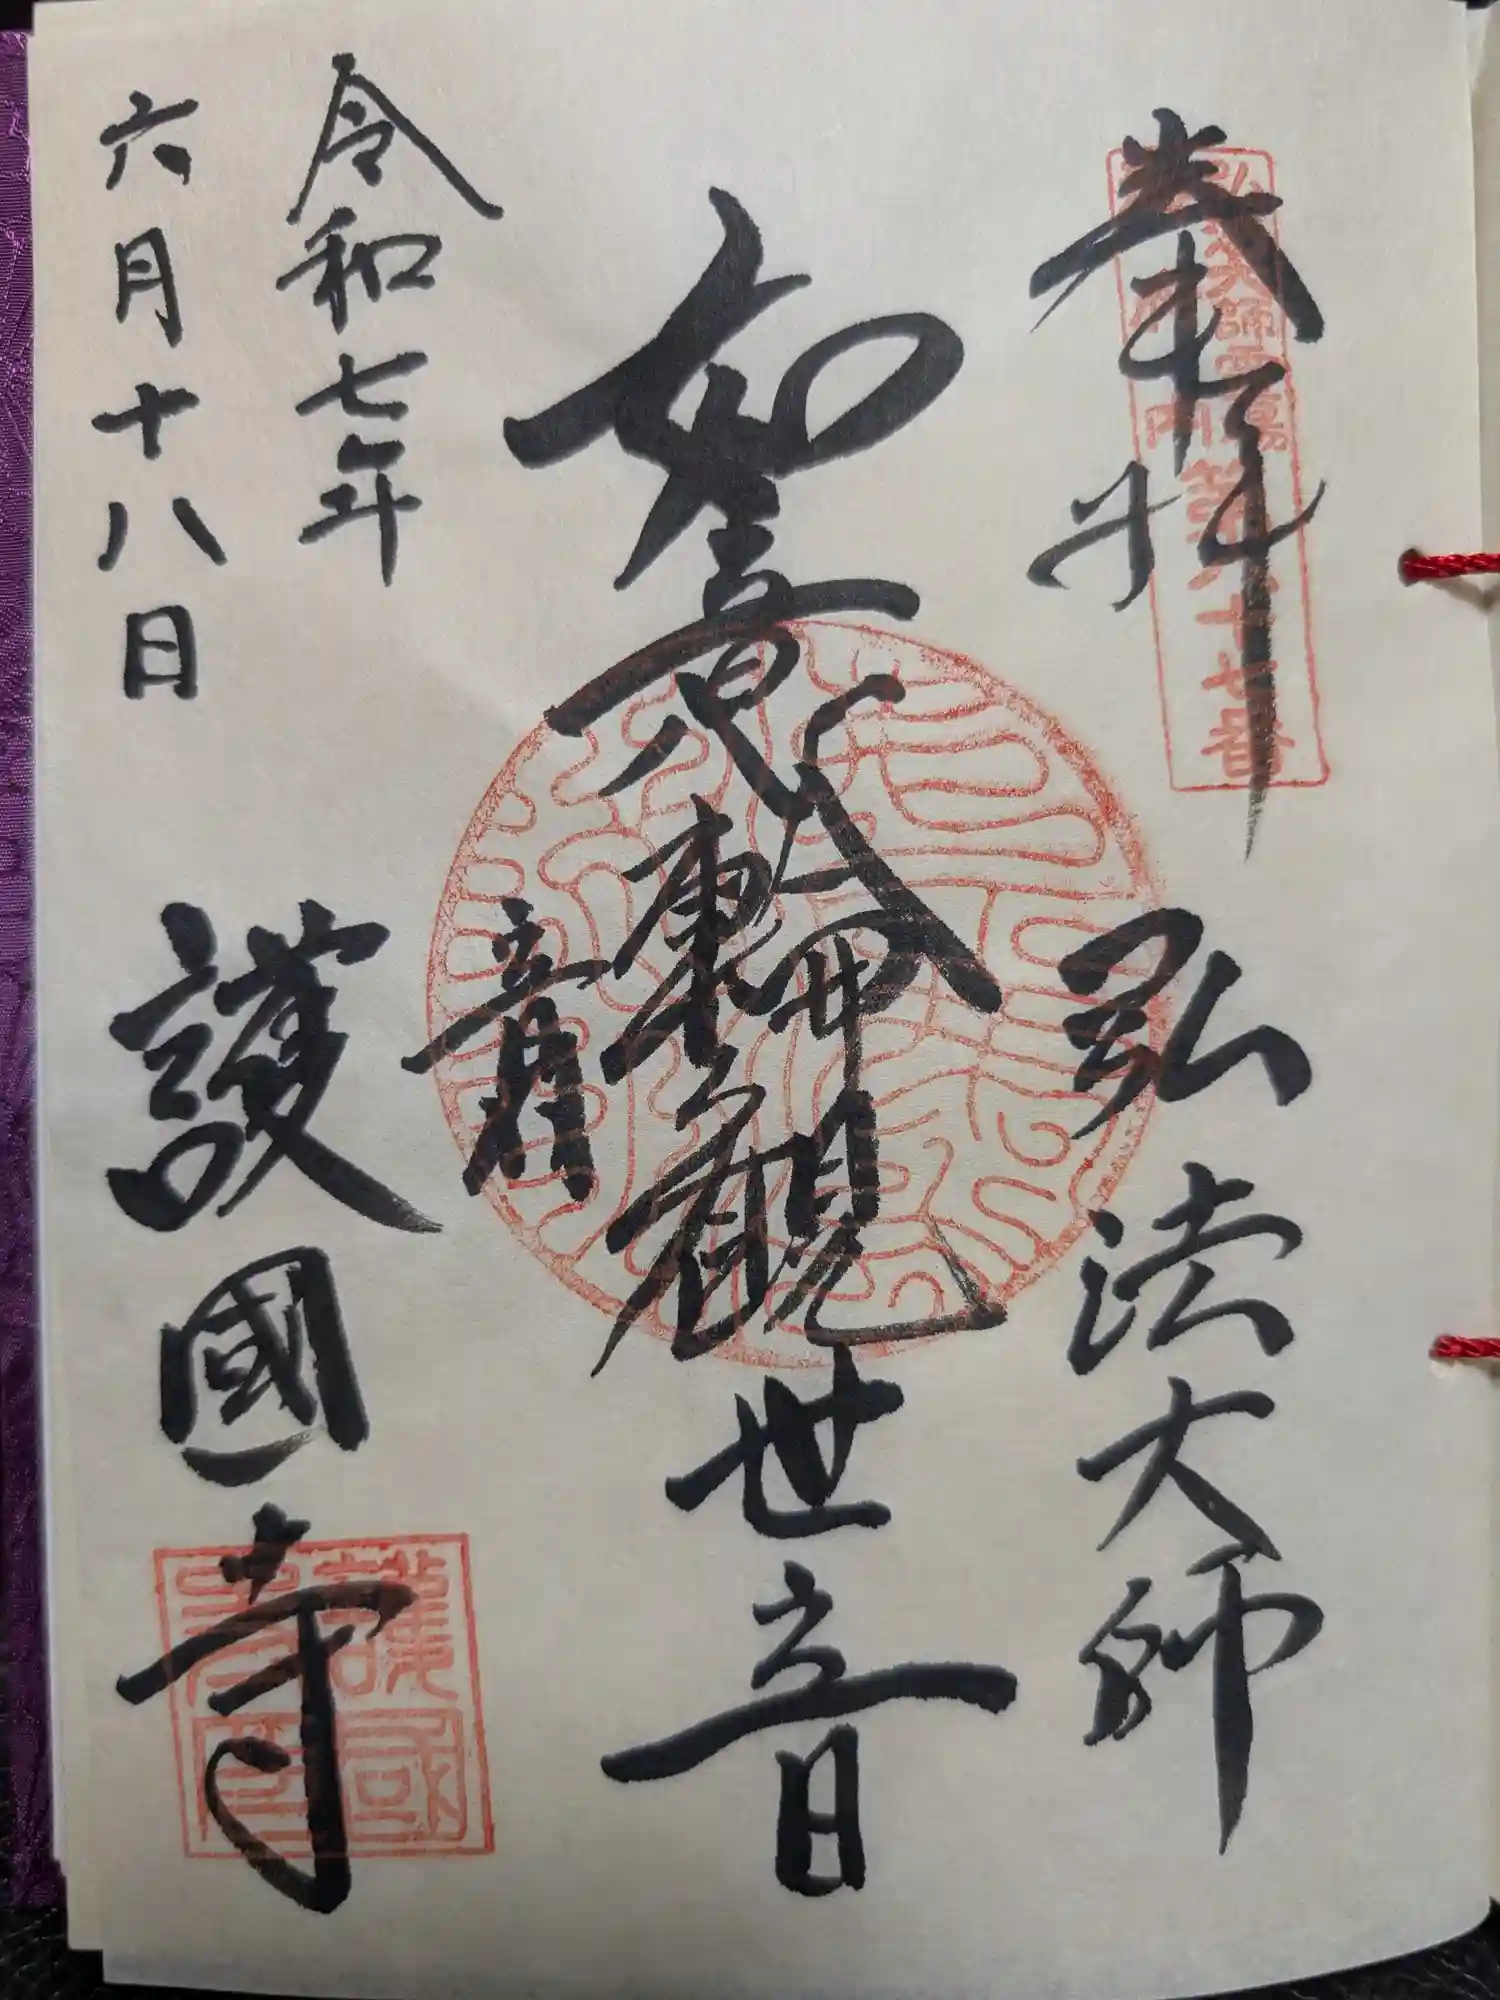 奉拝
弘法大師
如意輪觀世音
令和七年
六月十八日
護國寺
弘法大師霊場
第八十七番
護國寺印